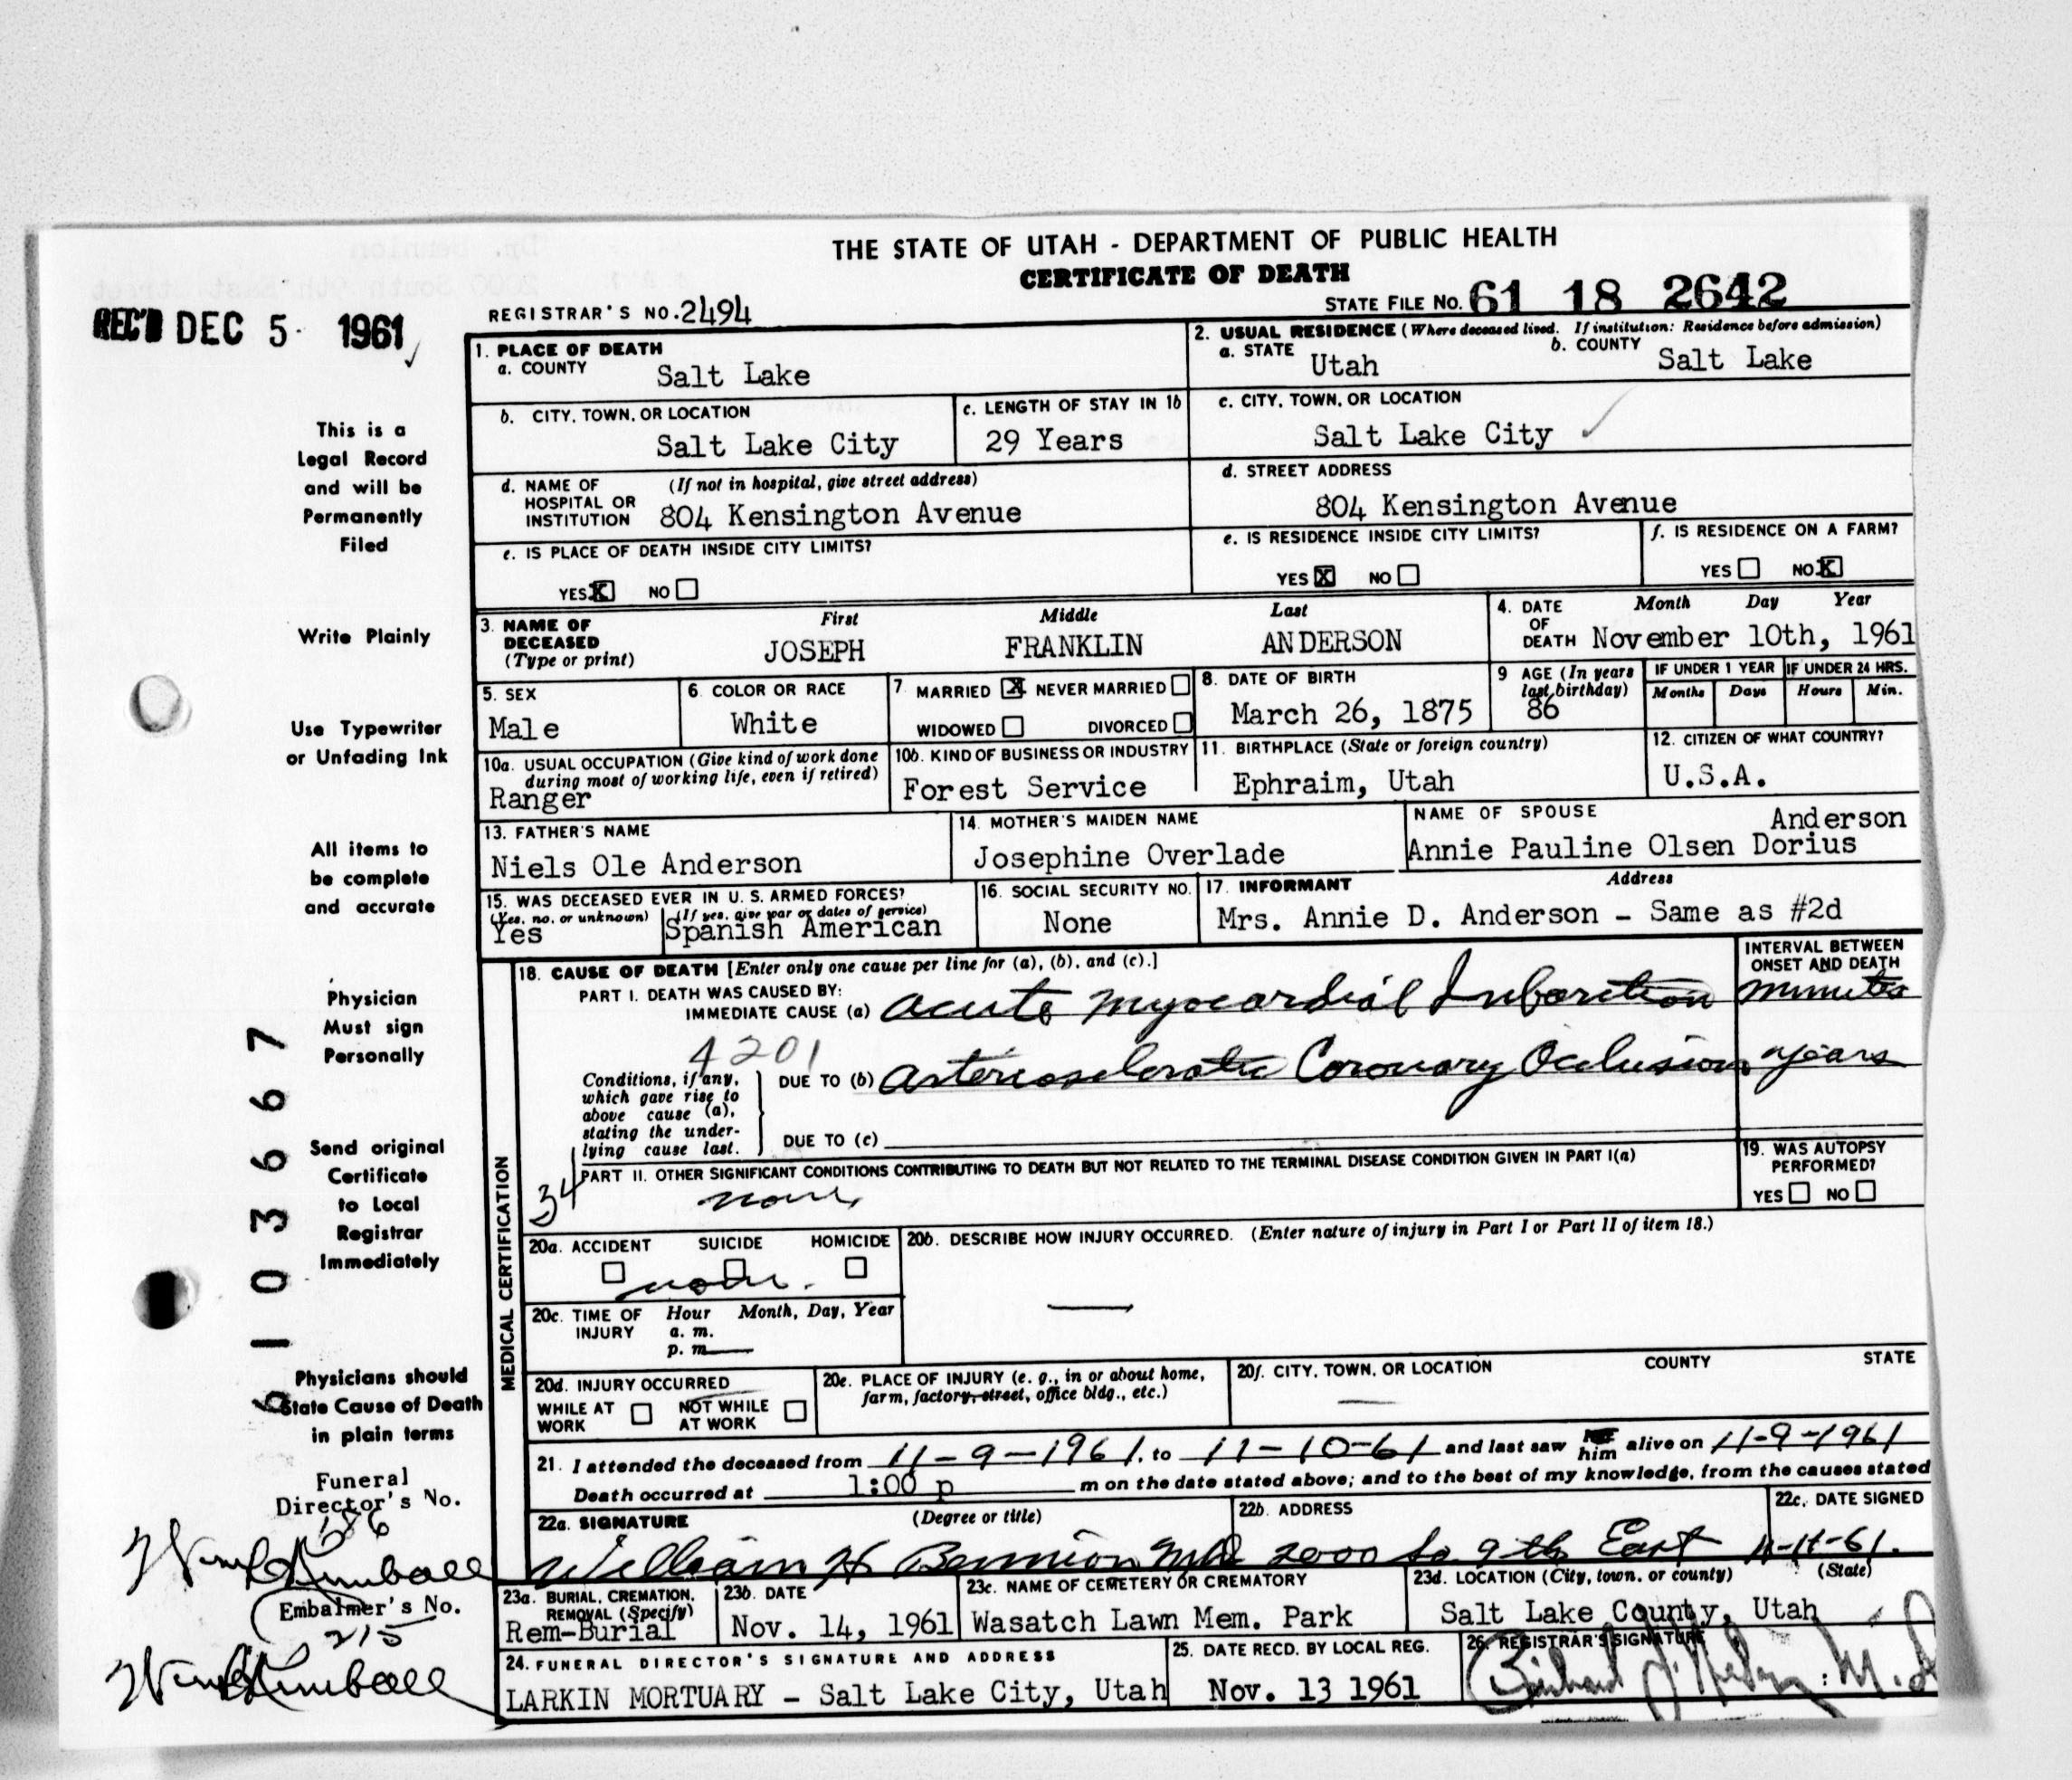 THE STATE OF UTAH - DEPARTMENT OF PUBLIC HEALTH
CERTIFICATE OF DEATH
STATE FILE No. 61 18 2642
REGISTRAR'S NO. 2494
REC'D DEC 5 1961
1. PLACE OF DEATH
a. COUNTY Salt Lake
2. USUAL RESIDENCE (Where deceased lived. If institution: Residence before admission)
a. STATE Utah b. COUNTY Salt Lake
b. CITY, TOWN, OR LOCATION Salt Lake City
c. LENGTH OF STAY IN 1b 29 Years
c. CITY, TOWN, OR LOCATION Salt Lake City
d. NAME OF HOSPITAL OR INSTITUTION (If not in hospital, give street address) 804 Kensington Avenue
d. STREET ADDRESS 804 Kensington Avenue
e. IS PLACE OF DEATH INSIDE CITY LIMITS?
YES X NO
e. IS RESIDENCE INSIDE CITY LIMITS?
YES X NO
f. IS RESIDENCE ON A FARM?
YES NO X
3. NAME OF DECEASED (Type or print)
First Middle Last
JOSEPH FRANKLIN ANDERSON
4. DATE OF DEATH Month Day Year
November 10th, 1961
5. SEX Male
6. COLOR OR RACE White
7. MARRIED X NEVER MARRIED
WIDOWED DIVORCED
8. DATE OF BIRTH March 26, 1875
9 AGE (In years last birthday) 86
IF UNDER 1 YEAR Months Days
IF UNDER 24 HRS. Hours Min.
10a. USUAL OCCUPATION (Give kind of work done during most of working life, even if retired)
Ranger
10b. KIND OF BUSINESS OR INDUSTRY
Forest Service
11. BIRTHPLACE (State or foreign country)
Ephraim, Utah
12. CITIZEN OF WHAT COUNTRY?
U.S.A.
13. FATHER'S NAME
Niels Ole Anderson
14. MOTHER'S MAIDEN NAME
Josephine Overlade
NAME OF SPOUSE Anderson
Annie Pauline Olsen Dorius
15. WAS DECEASED EVER IN U. S. ARMED FORCES?
(Yes, no, or unknown) (If yes, give war or dates of service)
Yes Spanish American
16. SOCIAL SECURITY NO.
None
17. INFORMANT Address
Mrs. Annie D. Anderson - Same as #2d
MEDICAL CERTIFICATION
18. CAUSE OF DEATH [Enter only one cause per line for (a), (b), and (c).]
INTERVAL BETWEEN ONSET AND DEATH
PART I. DEATH WAS CAUSED BY:
IMMEDIATE CAUSE (a) acute myocardial Infarction minutes
4201
Conditions, if any, which gave rise to above cause (a), stating the underlying cause last.
DUE TO (b) arteriosclerotic Coronary Occlusion years
DUE TO (c)
34
PART II. OTHER SIGNIFICANT CONDITIONS CONTRIBUTING TO DEATH BUT NOT RELATED TO THE TERMINAL DISEASE CONDITION GIVEN IN PART I(a)
none
19. WAS AUTOPSY PERFORMED?
YES NO
20a. ACCIDENT SUICIDE HOMICIDE
none.
20b. DESCRIBE HOW INJURY OCCURRED. (Enter nature of injury in Part I or Part II of item 18.)
20c. TIME OF INJURY Hour Month, Day, Year
a. m.
p. m.
20d. INJURY OCCURRED
WHILE AT WORK NOT WHILE AT WORK
20e. PLACE OF INJURY (e. g., in or about home, farm, factory, street, office bldg., etc.)
20f. CITY, TOWN, OR LOCATION COUNTY STATE
21. I attended the deceased from 11-9-1961, to 11-10-61 and last saw him alive on 11-9-1961
Death occurred at 1:00 p m on the date stated above; and to the best of my knowledge, from the causes stated
22a. SIGNATURE (Degree or title)
William H Bennion MD
22b. ADDRESS
2000 So 9th East
22c. DATE SIGNED
11-11-61.
23a. BURIAL, CREMATION, REMOVAL (Specify)
Rem-Burial
23b. DATE
Nov. 14, 1961
23c. NAME OF CEMETERY OR CREMATORY
Wasatch Lawn Mem. Park
23d. LOCATION (City, town, or county) (State)
Salt Lake County, Utah
24. FUNERAL DIRECTOR'S SIGNATURE AND ADDRESS
LARKIN MORTUARY - Salt Lake City, Utah
25. DATE RECD. BY LOCAL REG.
Nov. 13 1961
26. REGISTRAR'S SIGNATURE
This is a
Legal Record
and will be
Permanently
Filed
Write Plainly
Use Typewriter
or Unfading Ink
All items to
be complete
and accurate
Physician
Must sign
Personally
Send original
Certificate
to Local
Registrar
Immediately
Physicians should
State Cause of Death
in plain terms
Funeral
Director's No.
Kimball
Embalmer's No.
215
Kimball
6103667